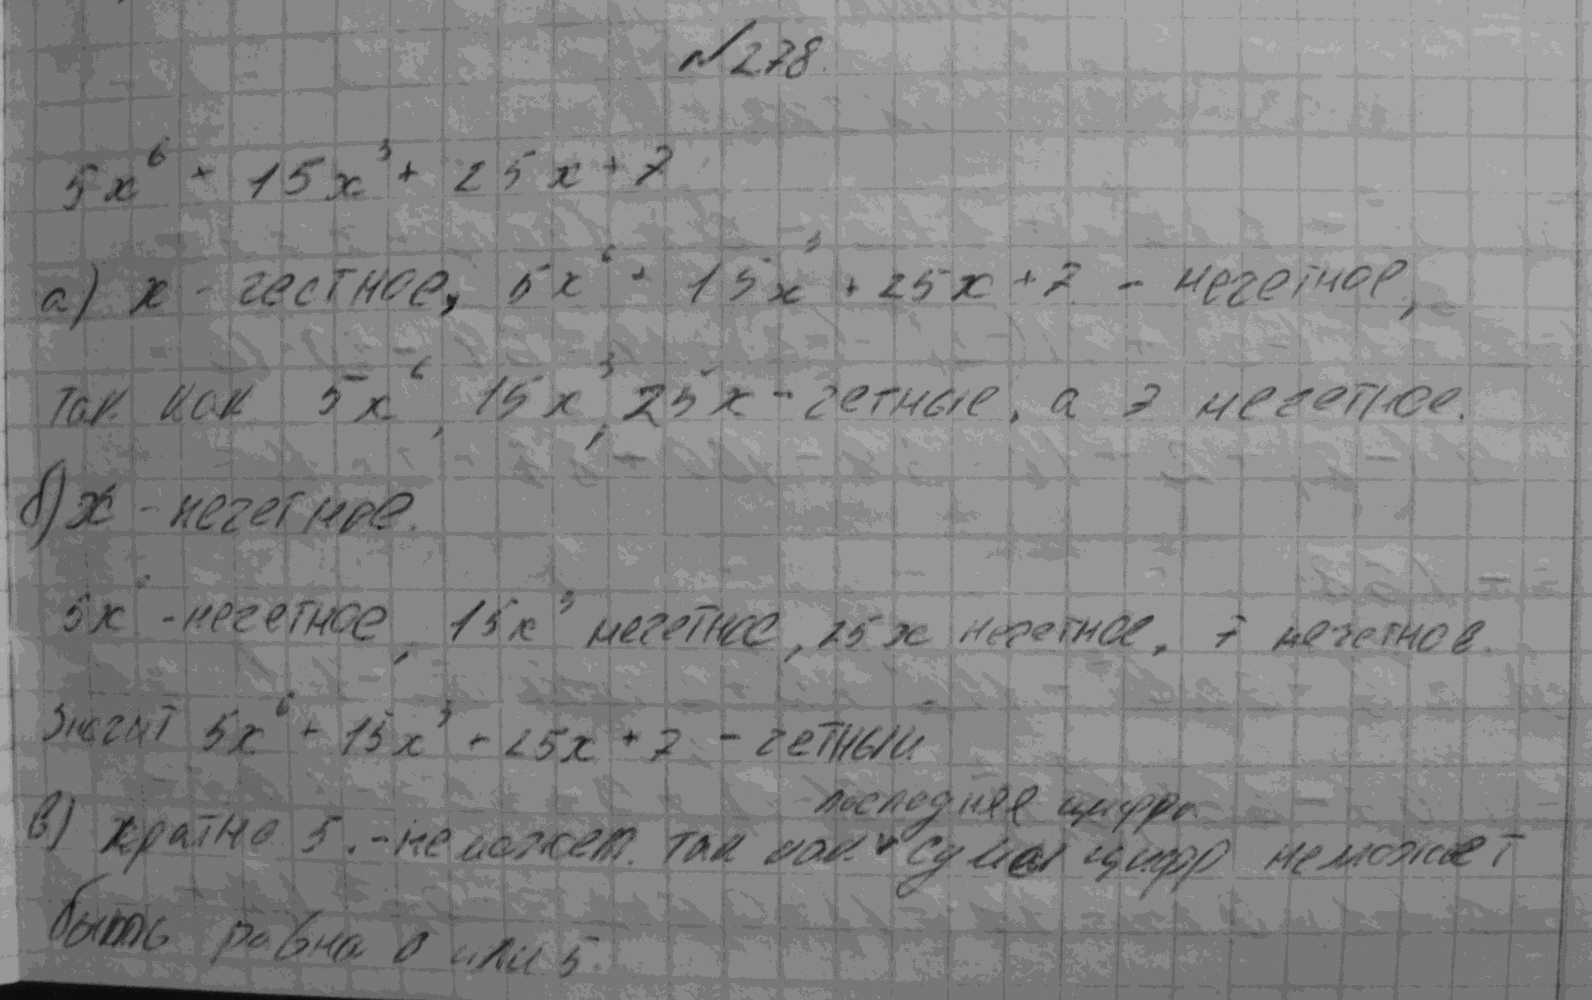 №278.
5x⁶ + 15x³ + 25x + 7
а) x - честное, 5x⁶ + 15x³ + 25x + 7 - нечетное,
так как 5x⁶, 15x³, 25x - четные, а 7 нечетное.
б) x - нечетное.
5x⁶ - нечетное, 15x³ нечетное, 25x нечетное, 7 нечетное.
Значит 5x⁶ + 15x³ + 25x + 7 - четный.
последняя цифра
в) кратно 5. - не может. так как сумы цифр не может
быть равна 0 или 5.